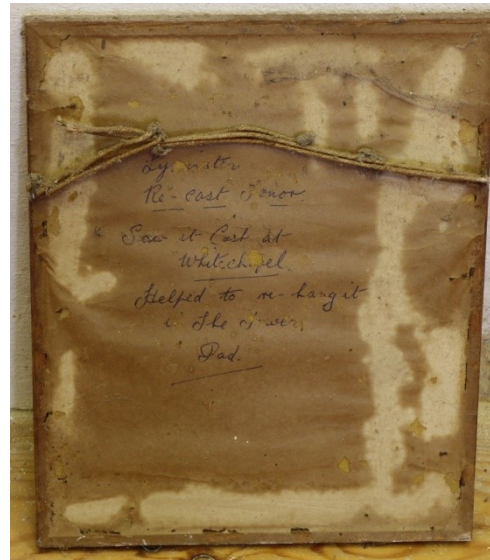 Lyminster
Re-cast Tenor
Saw it Cast at
Whitechapel.
Helped to re-hang it
in The Tower.
Dad.